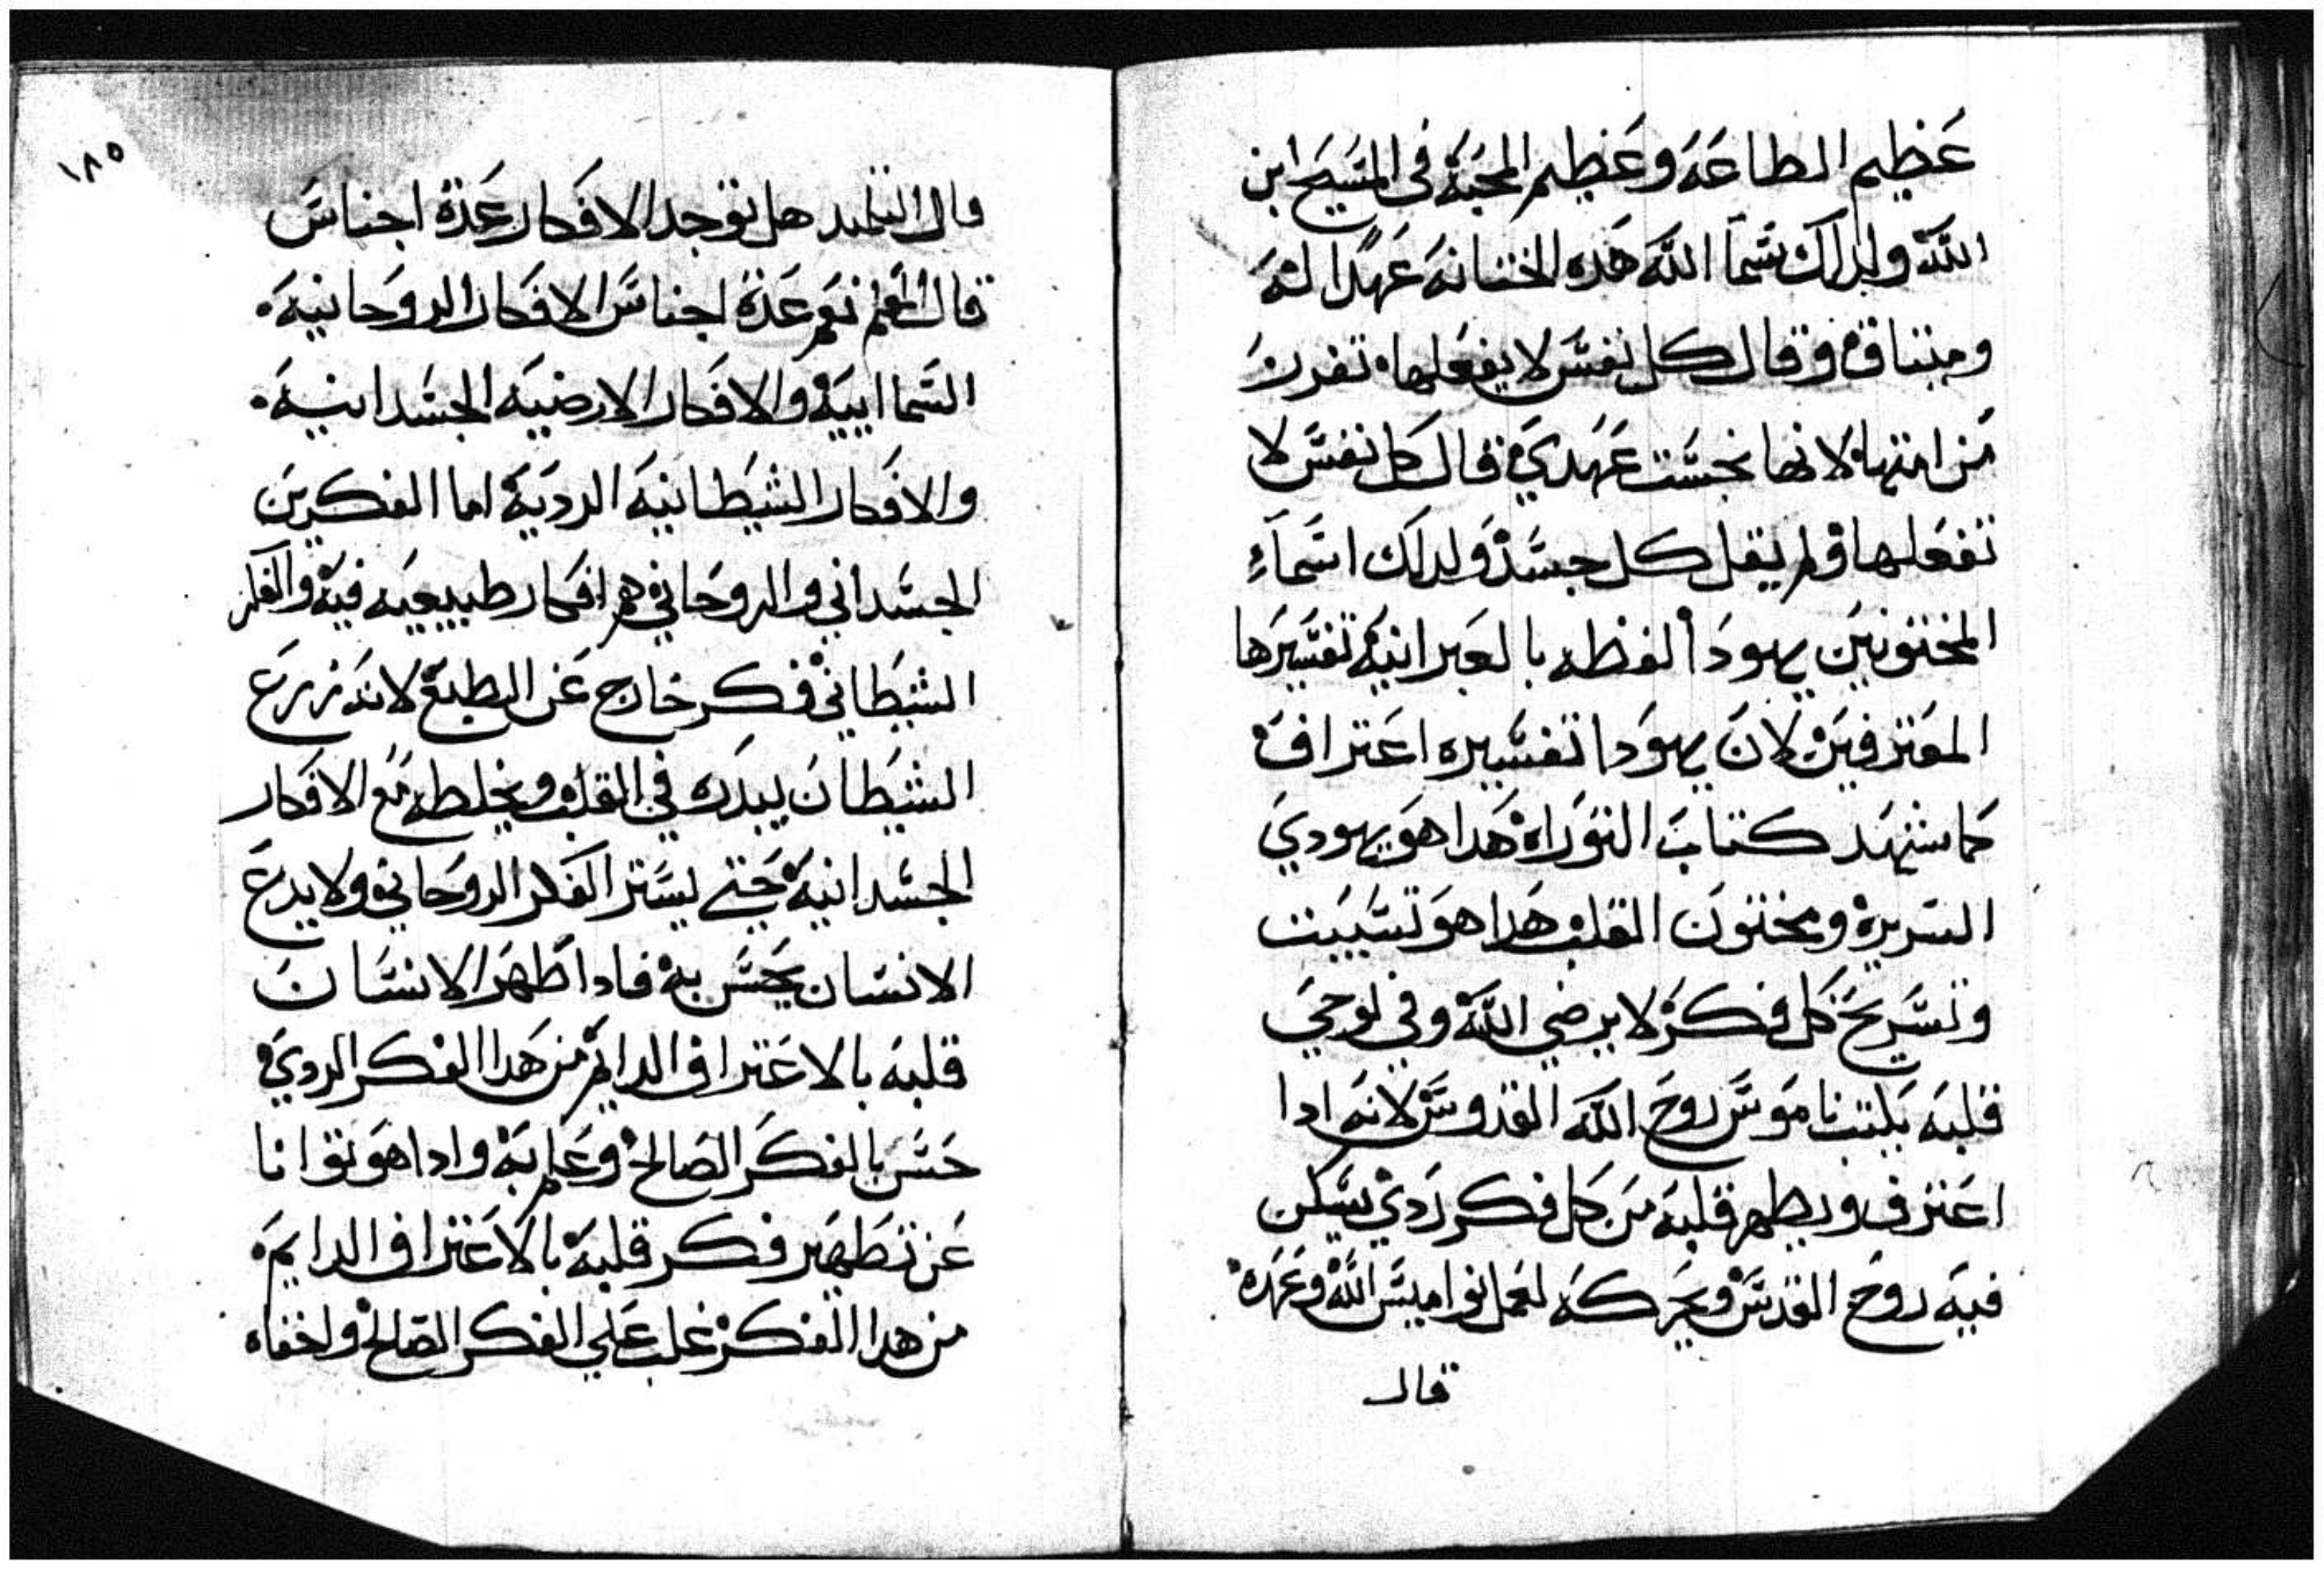 عظيم الطاعه وعظيم المحبه في المسيح ابن
الله ولدلك سما الله هده الختانه عهدًا له
وميتاق وقال كل نفس لا يفعلها تفرز
من امتها لانها نجست عهدي قال كل نفس لا
تفعلها ولم يقل كل جسد ولدلك اسماء
المختونين يهودا لفظه بالعبرانيه تفسيرها
المعترفين لان يهودا تفسيره اعتراف
كما شهد كتاب التوراه هدا هو يهودي
السريره ومختون القلب هدا هو تسبيت
وتسريح كل فكر لا يرضي الله وفي لوحي
قلبه يكتب ناموس روح الله القدوس لانه ادا
اعترف ويطهر قلبه من كل فكر ردي يسكن
فيه روح القدس ويحركه لعمل نواميس الله وعهده
قال
١٨٥
قال التلميد هل توجد الافكار عدة اجناس
قال المعلم نعم عدة اجناس الافكار الروحانيه
السمااييه والافكار الارضيه الجسدانيه
والافكار الشيطانيه الرديه اما الفكرين
الجسداني والروحاني هم افكار طبيعيه فيه والفكر
الشيطاني فكر خارج عن الطبع لانه زرع
الشيطان يبدره في القلب ويخلطه مع الافكار
الجسدانيه حتي يستر الفكر الروحاني ولا يدع
الانسان يحس به فادا طهر الانسان
قلبه بالاعتراف الدايم من هدا الفكر الردي
حس بالفكر الصالح وعلم به وادا هو توانا
عن تطهير فكر قلبه بالاعتراف الدايم
من هدا الفكر غلب علي الفكر الصالح واخفاه